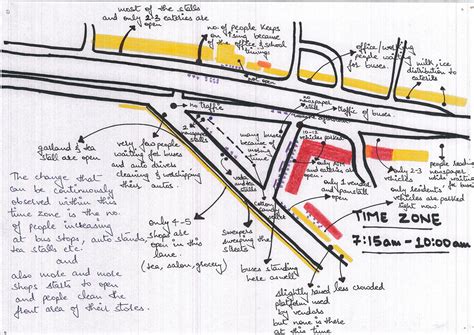 most of the stalls
and only 2-3 eateries are
open
no. of people keeps
on rising because
of the office & school
timings
not open
office/working
people waiting
for buses.
milk, ice
distribution to
eateries
no traffic
no
newspaper
stall
traffic of buses
garland & tea
stall are
open
very few people
waiting for buses
and auto drivers
cleaning & worshipping
their autos.
vegetable
sellers
many buses
because of
timing.
10-12
vehicles parked
only ATM
and eateries
are open
only 2-3
vehicles
people reading
newspaper
while waiting
for buses
The change that
can be continuously
observed within this
time zone is the no.
of people increasing
at bus stops, auto stands,
tea stalls etc.
and
also more and more
shops starts to open
and people clean the
front area of their stores.
only 4-5
shops are
open in
this lane.
(tea, salon, grocery)
tea stall
Sweepers
sweeping the
streets
buses standing
here as well
only 2 vendors
and panstall
open
only residents'
vehicles are parked
right now
TIME ZONE
7:15am - 10:00am
slightly raised
platform used
by vendors
but none is there
at this time
less crowded